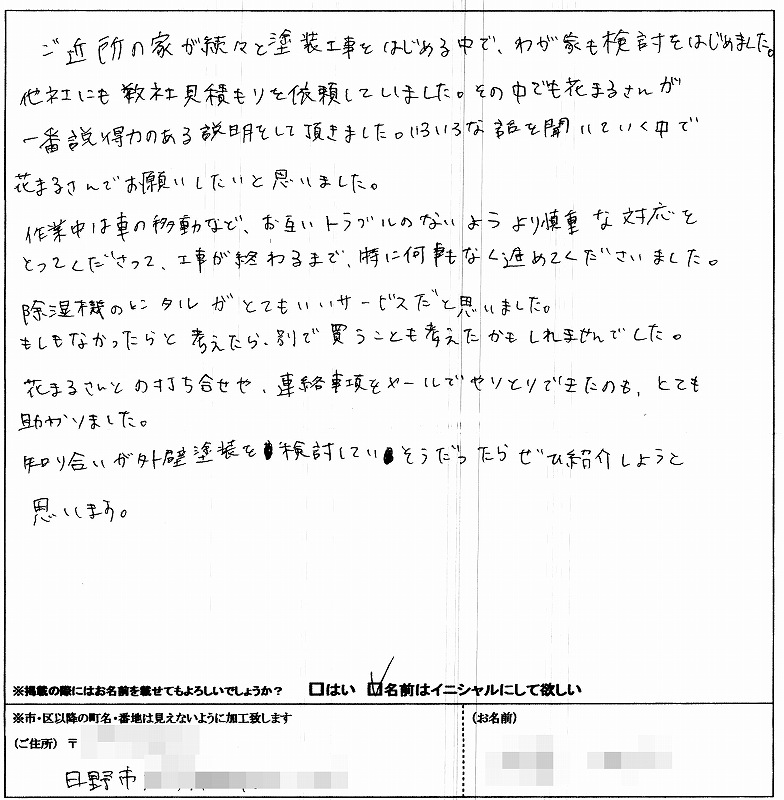 ご近所の家が続々と塗装工事をはじめる中で、わが家も検討をはじめました。
他社にも数社見積もりを依頼していました。その中でも花まるさんが
一番説得力のある説明をして頂きました。いろいろな話を聞いていく中で
花まるさんでお願いしたいと思いました。
作業中は車の移動など、お互いトラブルのないよう より慎重な対応を
とってくださって、工事が終わるまで、特に何事もなく進めてくださいました。
除湿機のレンタルがとてもいいサービスだと思いました。
もしもなかったらと考えたら、別で買うことも考えたかもしれませんでした。
花まるさんとの打ち合せや、連絡事項をメールでやりとりできたのも、とても
助かりました。
知り合いが外壁塗装を検討していそうだったらぜひ紹介しようと
思います。
※掲載の際にはお名前を載せてもよろしいでしょうか? □はい ☑名前はイニシャルにして欲しい
※市・区以降の町名・番地は見えないように加工致します
(お名前)
(ご住所) 〒
日野市